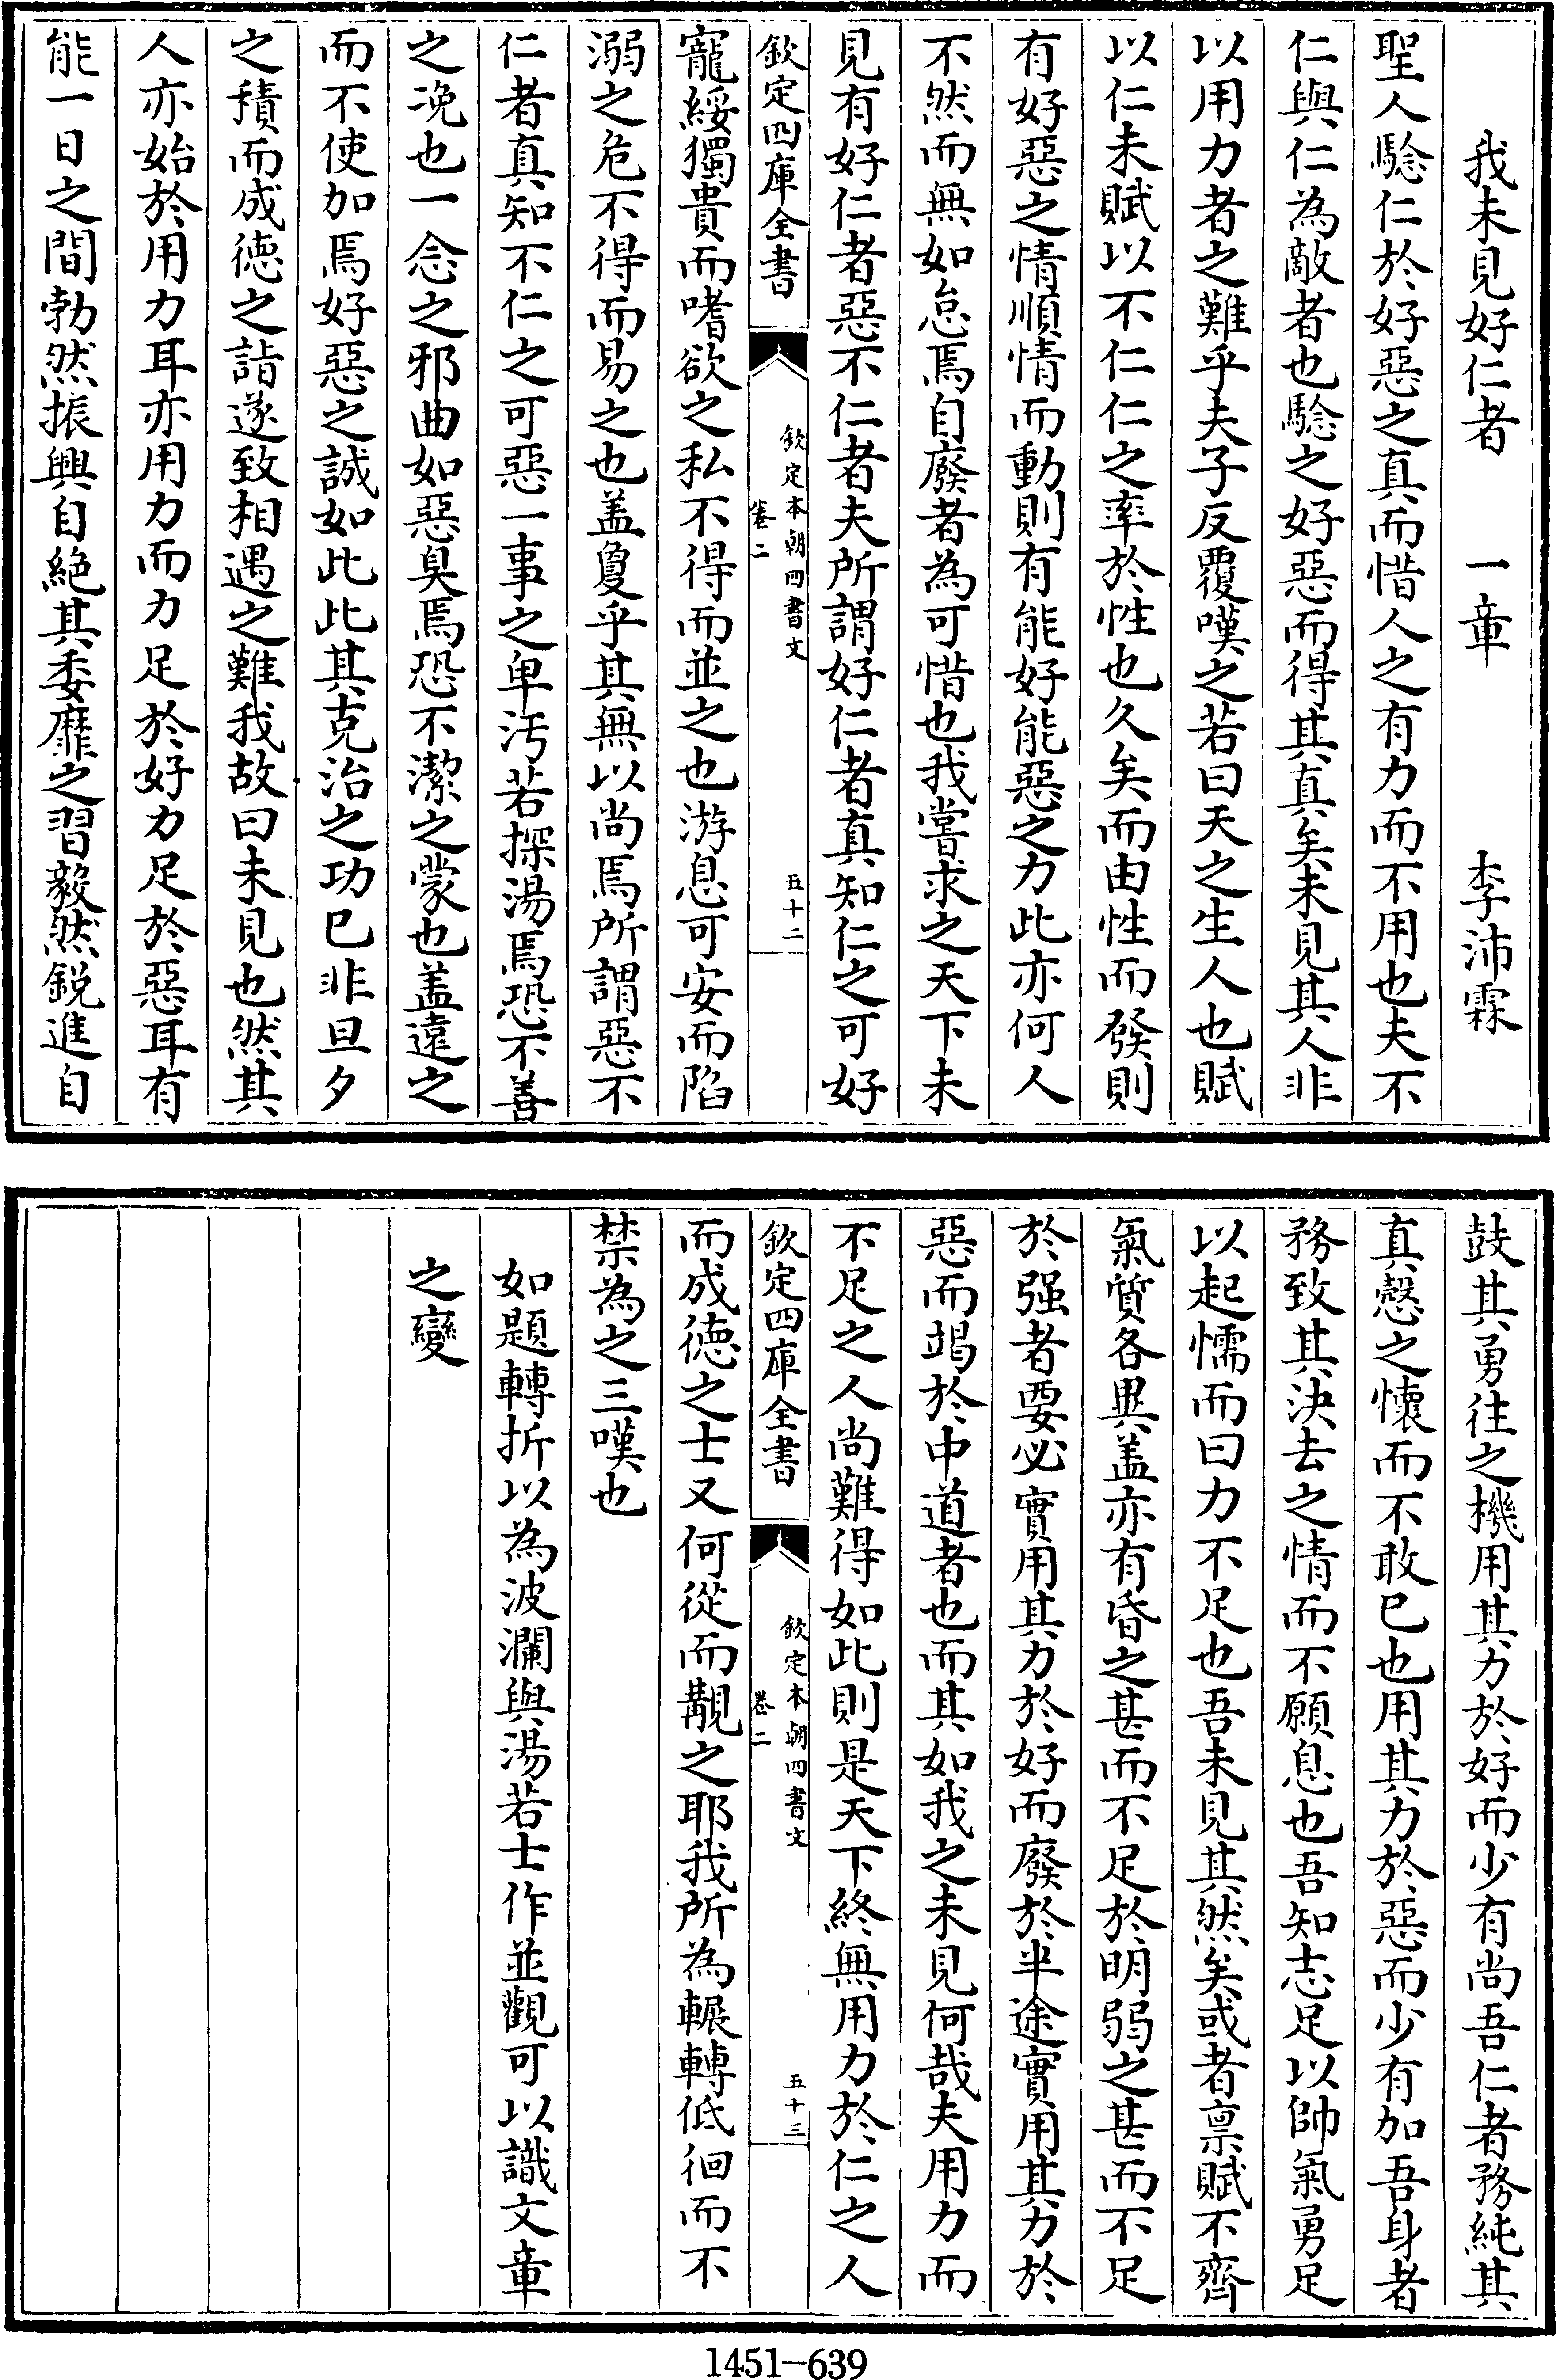 我未見好仁者　一章　李沛霖
聖人騐仁於好惡之真而惜人之有力而不用也夫不
仁與仁為敵者也騐之好惡而得其真矣未見其人非
以用力者之難乎夫子反覆嘆之若曰天之生人也賦
以仁未賦以不仁仁之率於性也久矣而由性而發則
有好惡之情順情而動則有能好能惡之力此亦何人
不然而無如怠焉自廢者為可惜也我嘗求之天下未
見有好仁者惡不仁者夫所謂好仁者真知仁之可好
欽定四庫全書
欽定本朝四書文
卷二
五十二
寵綏獨貴而嗜欲之私不得而並之也游息可安而陷
溺之危不得而易之也盖敻乎其無以尚焉所謂惡不
仁者真知不仁之可惡一事之卑汚若探湯焉恐不善
之浼也一念之邪曲如惡臭焉恐不潔之蒙也盖遠之
而不使加焉好惡之誠如此此其克治之功已非旦夕
之積而成德之詣遂致相遇之難我故曰未見也然其
人亦始於用力耳亦用力而力足於好力足於惡耳有
能一日之間勃然振興自絶其委靡之習毅然鋭進自
鼓其勇往之機用其力於好而少有尚吾仁者務純其
真慤之懷而不敢已也用其力於惡而少有加吾身者
務致其決去之情而不願息也吾知志足以帥氣勇足
以起懦而曰力不足也吾未見其然矣或者禀賦不齊
氣質各異盖亦有昏之甚而不足於明弱之甚而不足
於强者要必實用其力於好而廢於半途實用其力於
惡而竭於中道者也而其如我之未見何哉夫用力而
不足之人尚難得如此則是天下終無用力於仁之人
欽定四庫全書
欽定本朝四書文
卷二
五十三
而成德之士又何從而覯之耶我所為輾轉低徊而不
禁為之三嘆也
如題轉折以為波瀾與湯若士作並觀可以識文章
之變
1451-639